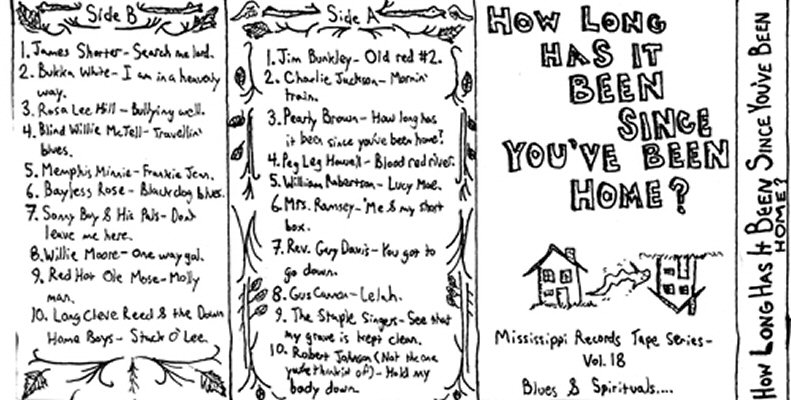 Side B
1. James Shorter - Search me lord.
2. Bukka White - I am in a heavenly
way.
3. Rosa Lee Hill - Bullying well.
4. Blind Willie McTell - Travellin'
blues.
5. Memphis Minnie - Frankie Jean.
6. Bayless Rose - Black dog blues.
7. Sonny Boy & His Pals - Dont
leave me here.
8. Willie Moore - One way gal.
9. Red Hot Ole Mose - Molly
man.
10. Long Cleve Reed & the Down
Home Boys - Stack O' Lee.
Side A
1. Jim Bunkley - Old red #2.
2. Charlie Jackson - Mornin'
train.
3. Pearly Brown - How long has
it been since you've been home?
4. Peg Leg Howell - Blood red river.
5. William Robertson - Lucy Mae.
6. Mrs. Ramsey - 'Me & my short
box.
7. Rev. Gary Davis - You got to
go down.
8. Gus Cannon - Lelah.
9. The Staple Singers - See that
my grave is kept clean.
10. Robert Johnson (Not the one
you're thinkin of) - Hold my
body down.
HOW LONG
HAS IT
BEEN
SINCE
YOU'VE BEEN
HOME?
Mississippi Records Tape Series -
Vol. 18
Blues & Spirituals....
HOW LONG HAS IT BEEN SINCE YOU'VE BEEN
HOME?